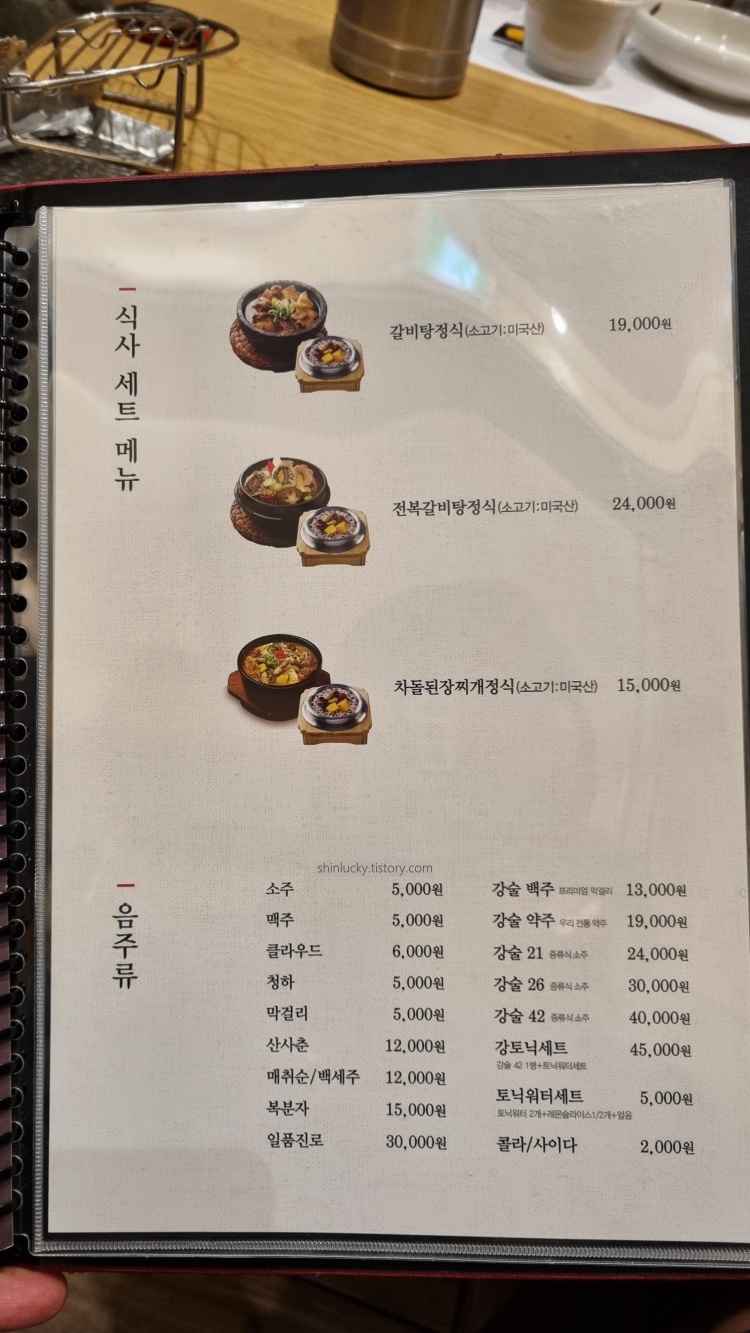 식사 세트 메뉴
갈비탕정식(소고기:미국산) 19,000원
전복갈비탕정식(소고기:미국산) 24,000원
차돌된장찌개정식(소고기:미국산) 15,000원
shinlucky.tistory.com
음주류
소주 5,000원
맥주 5,000원
클라우드 6,000원
청하 5,000원
막걸리 5,000원
산사춘 12,000원
매취순/백세주 12,000원
복분자 15,000원
일품진로 30,000원
강술 백주 프리미엄 막걸리 13,000원
강술 약주 우리 전통 약주 19,000원
강술 21 증류식 소주 24,000원
강술 26 증류식 소주 30,000원
강술 42 증류식 소주 40,000원
강토닉세트 45,000원
강술 42 1병+토닉워터세트
토닉워터세트 5,000원
토닉워터 2개+레몬슬라이스1/2개+얼음
콜라/사이다 2,000원